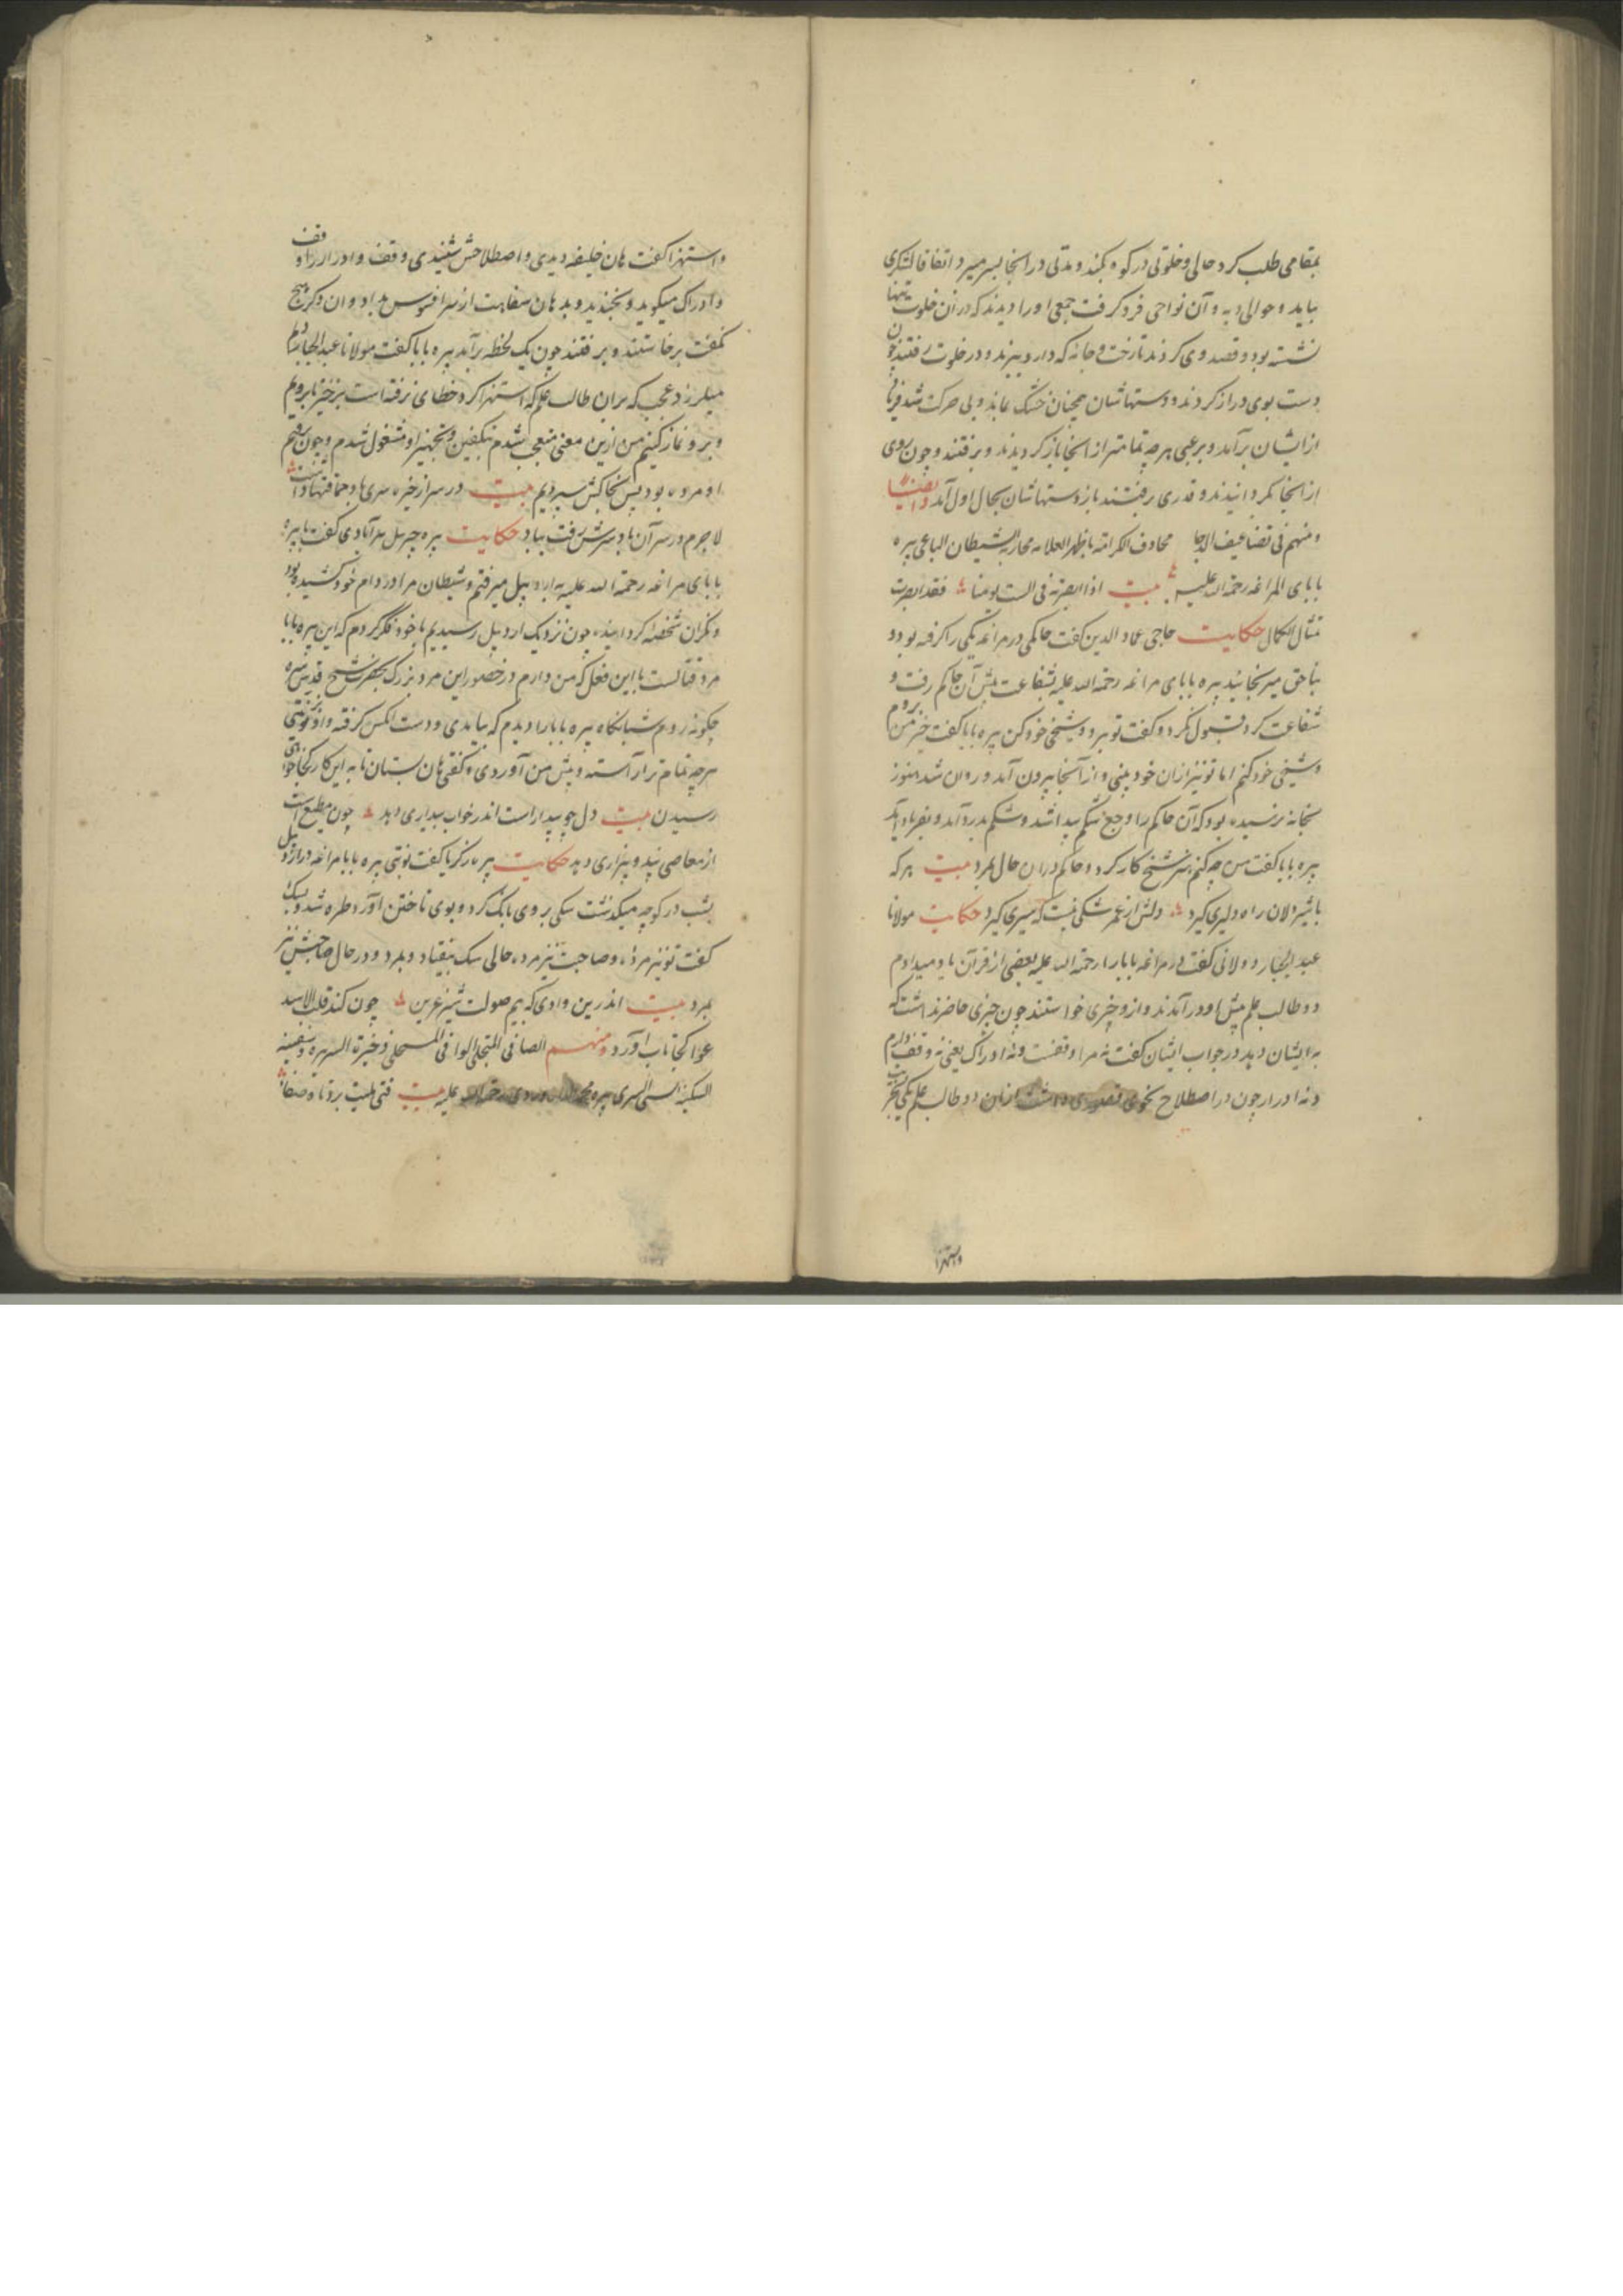 بمقامی طلب کرد حالی و خلوتی در کوه بکند و مدتی در انجا بسر میبرد اتفاقا لشکری
بیاید و حوالی دیه و آن نواحی فرو گرفت جمعی او را دیدند که در آن خلوت تنها
نشسته بود و قصد وی کردند تا رخت و جامه که دارد ببرند و در خلوت رفتند چون
دست بوی دراز کردند دستهاشان همچنان خشک بماند و بی حرکت شد فریاد
از ایشان برآمد و برعبی هرچه تمامتر از انجا باز گردیدند و برفتند و چون روی
از انجا بگردانیدند و قدری برفتند باز دستهاشان بحال اول آمد وایضا
ومنهم فی تضاعیف الدجا محارب الشیطان الباغی پیره
بابای المراغه رحمة الله علیه بیت اذا ابصرته فی الست یومنا فقد ابصرت
تمثال الکمال حکایت حاجی عماد الدین گفت حاکمی در مراغه یکی را گرفته بود و
بناحق میرنجانید پیره بابای مراغه رحمة الله علیه بشفاعت پیش آن حاکم رفت و
شفاعت کرد قبول نکرد و گفت تو برو و شیخی خود کن پیره بابا گفت خیر من بروم
و شیخی خود کنم اما تو نیز ازان خود ببینی و از آنجا بیرون آمد و روان شد هنوز
بخانه نرسیده بود که آن حاکم را وجع شکم پیدا شد و شکم بدرد آمد و بفریاد آمد
پیره بابا گفت من چه کنم تیر شیخ کار کرد و حاکم دران حال بمرد بیت هر که
با شیردلان راه دلیری گیرد دلش از عمر شکی نیست که سیری گیرد حکایت مولانا
عبد الجبار دولانی گفت در مراغه بابا را رحمة الله علیه بعضی از قرآن یاد میدادم
دو طالب علم پیش او درآمدند و ازو چیزی خواستند چون چیزی حاضر نداشت که
به ایشان دهد در جواب ایشان گفت نه مرا وقفست و نه ادراک یعنی نه وقف دارم
و نه ادرار چون در اصطلاح نحوی قصوری داشت ازان دو طالب علم یکی بتجریب
واستهزا
واستهزا گفت هان خلیفه دیدی و اصطلاحش شنیدی وقف و ادرار را وقف
و ادراک میگوید و بخندید و بدهان سفاهت از سر افسوس بداد و آن دگر هیچ
نگفت برخاستند و برفتند چون یک لحظه برآمد پیره بابا گفت مولانا عبد الجبار دلم
میلرزد عجب که بران طالب علم که استهزا کرد خطای نرفته است برخیز تا برویم
و برو نماز کنیم من ازین معنی متعجب شدم بتکفین و تجهیز او مشغول شدم و چون رفتیم
او مرده بود پس بخاکش سپردیم بیت در سر از خیره سری ها و حماقتها داشت
لاجرم در سر آن باد سرش رفت بباد حکایت پیره جبرئیل سرآبادی گفت با پیره
بابای مراغه رحمة الله علیه به اردبیل میرفتم و شیطان مرا در دام خود کشیده بود
و نگران شخصی گردانیده چون نزدیک اردبیل رسیدیم با خود فکر کردم که این پیره بابا
مرد قتالست با این فعل که من دارم در حضور این مرد بزرگ بحضرت شیخ قدس سره
چگونه روم شبانگاه پیره بابا را دیدم که بیامدی و دست آنکس گرفته و او بزینتی
هرچه تمام تر آراسته و پیش من آوردی و گفتی هان بستان تا به این کار کجا خواهی
رسیدن بیت دل چو بیدار است اندر خواب بیداری دهد چون مطیع است
از معاصی بند و بیزاری دهد حکایت پیره زکریا گفت نوبتی پیره بابا مراغه در اردبیل
بشب در کوچه میگذشت سگی بر وی بانگ کرد و بوی تاختن آورد طره شد و بسگ
گفت تو نیز مرده و صاحبت نیز مرده حالی سگ بیفتاد و بمرد و در حال صاحبش نیز
بمرد بیت اندرین وادی که بیم صولت شیر عرین چون کند قلب الاسد
عوا کجا تاب آورد ومنهم الصافی المتجلی الوافی المتحلی ذخیرة السریره و سفینه
السکینه السنی السری پیره محمد علیه بیت